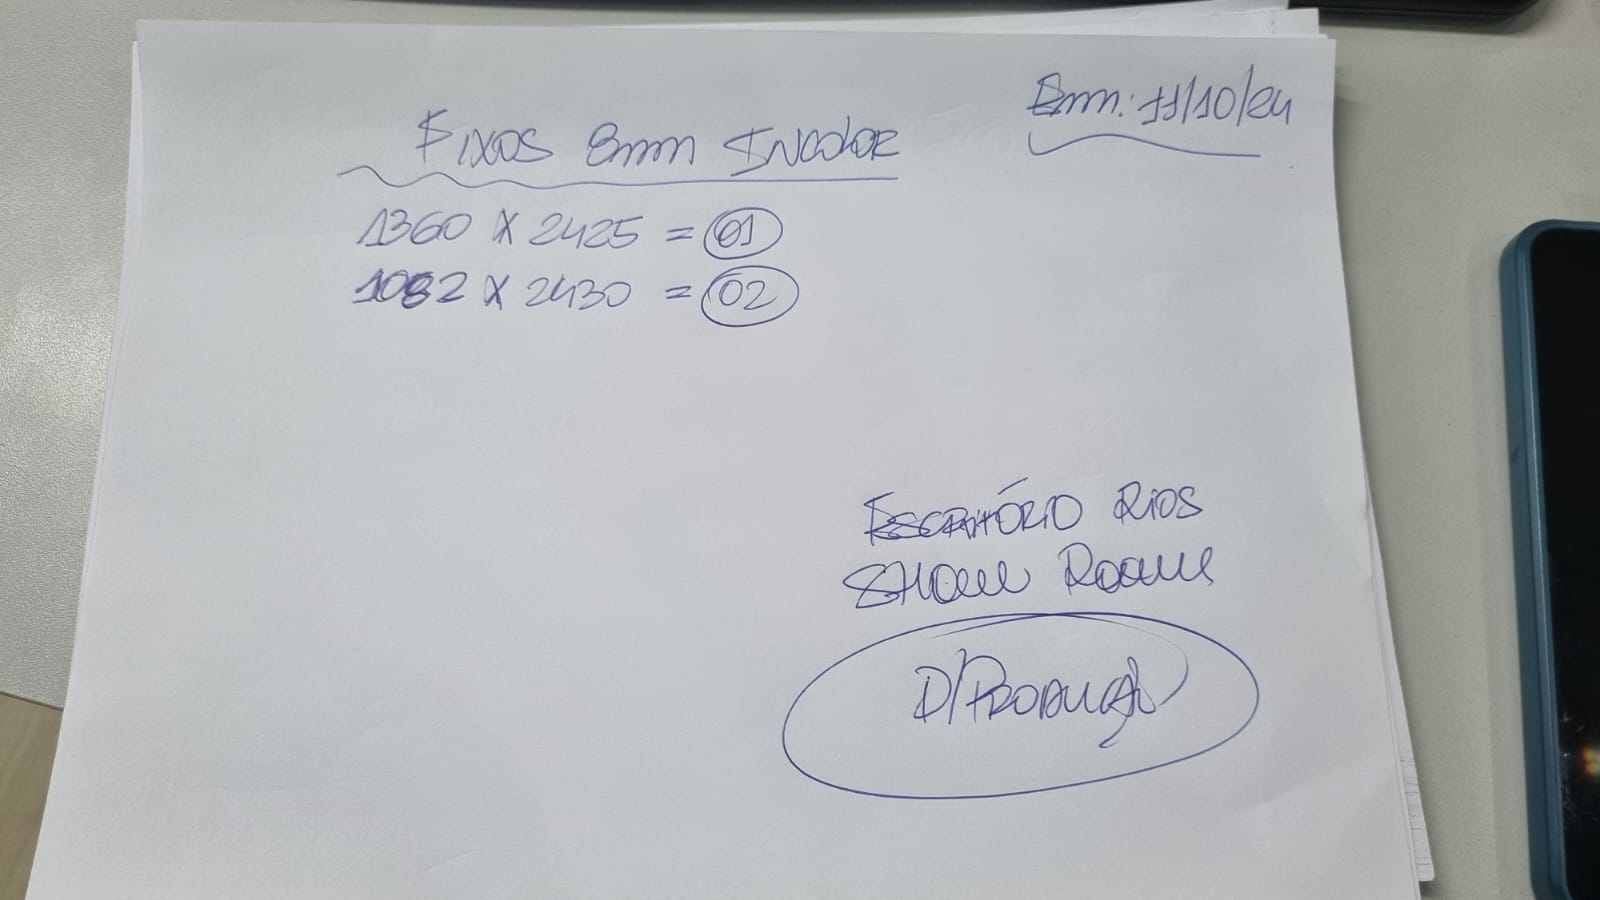 Em: 11/10/24
Fixos 8mm Incolor
1360 X 2425 = 01
1082 X 2430 = 02
Escritório Rios
Show Room
P/Produção